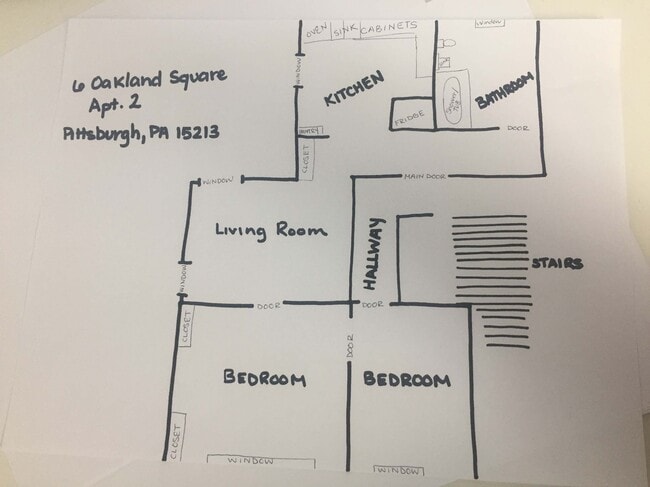 6 Oakland Square
Apt. 2
Pittsburgh, PA 15213
OVEN SINK CABINETS
WINDOW
WINDOW
KITCHEN
BATHROOM
FRIDGE
DOOR
CLOSET
WINDOW
MAIN DOOR
LIVING ROOM
HALLWAY
STAIRS
WINDOW
DOOR
DOOR
CLOSET
DOOR
BEDROOM
BEDROOM
CLOSET
WINDOW
WINDOW